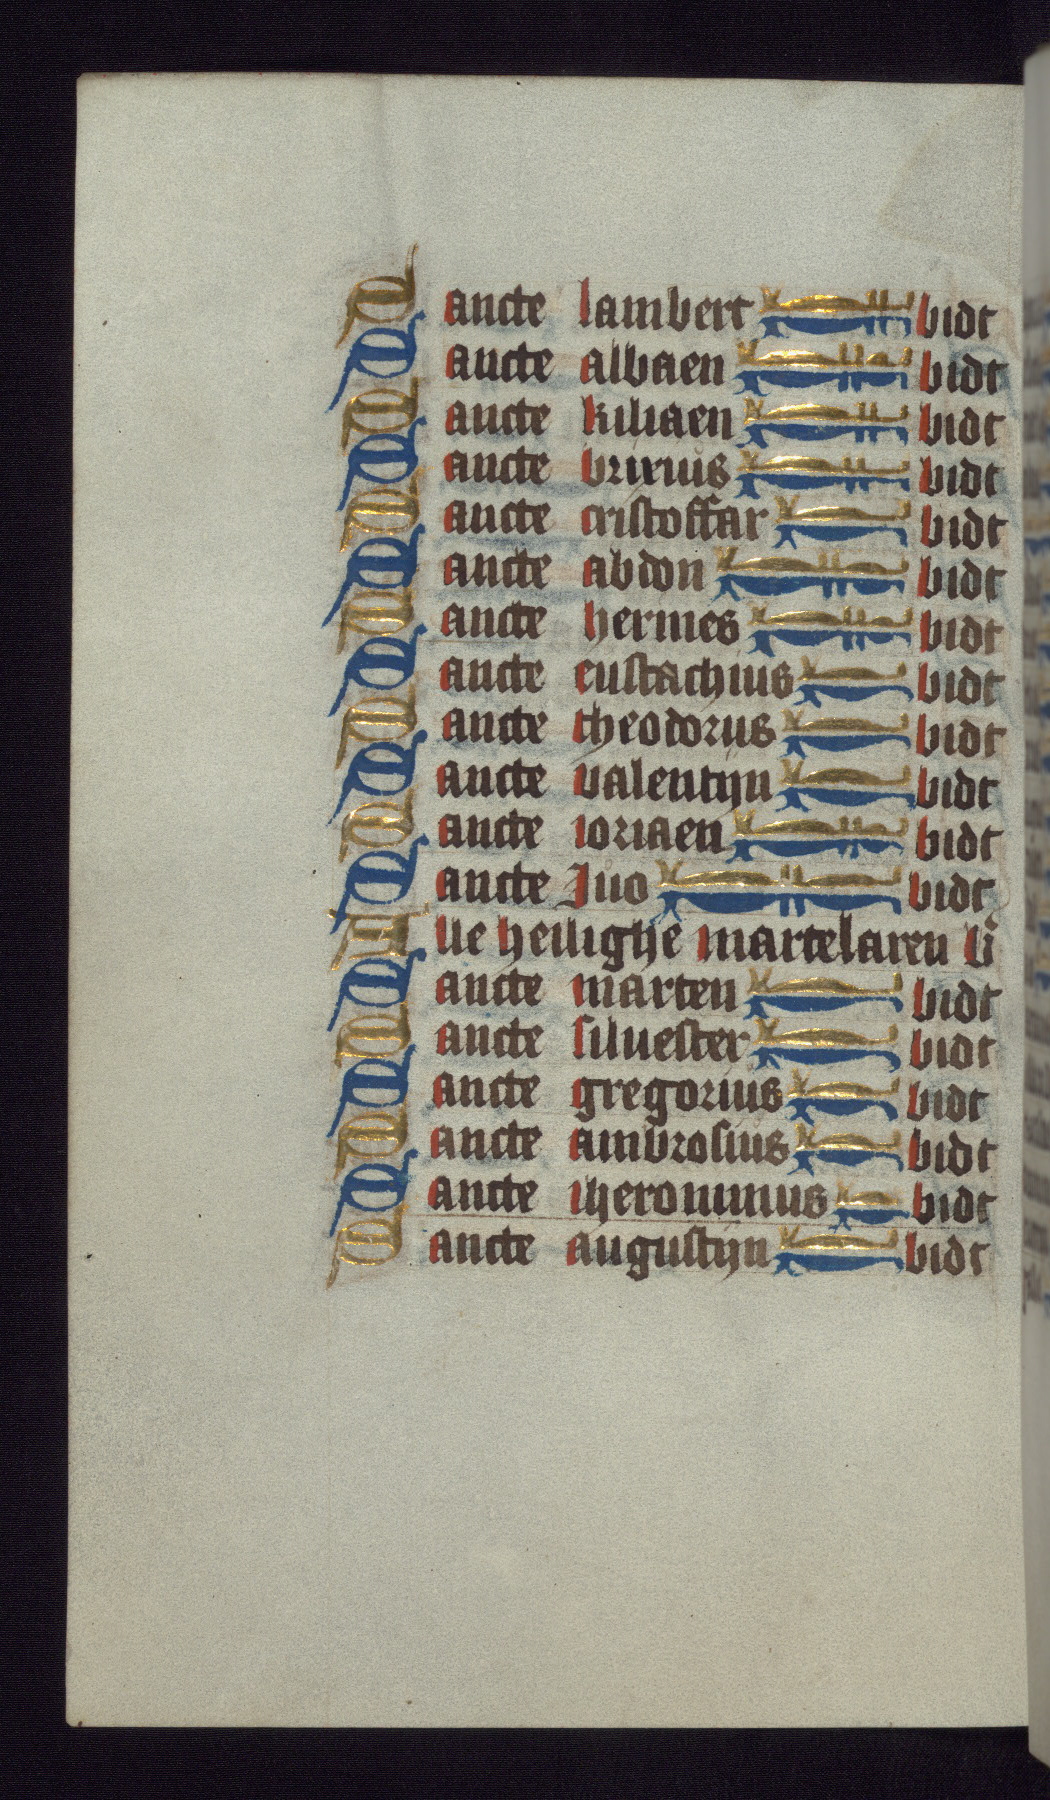 Sancte lambert bidt
Sancte albaen bidt
Sancte kiliaen bidt
Sancte brixius bidt
Sancte cristoffar bidt
Sancte abdon bidt
Sancte hermes bidt
Sancte eustachius bidt
Sancte theodorus bidt
Sancte valentijn bidt
Sancte ioriaen bidt
Sancte Juo bidt
Alle heilighe martelaren b
Sancte marten bidt
Sancte siluester bidt
Sancte gregorius bidt
Sancte ambrosius bidt
Sancte iheronimus bidt
Sancte augustijn bidt